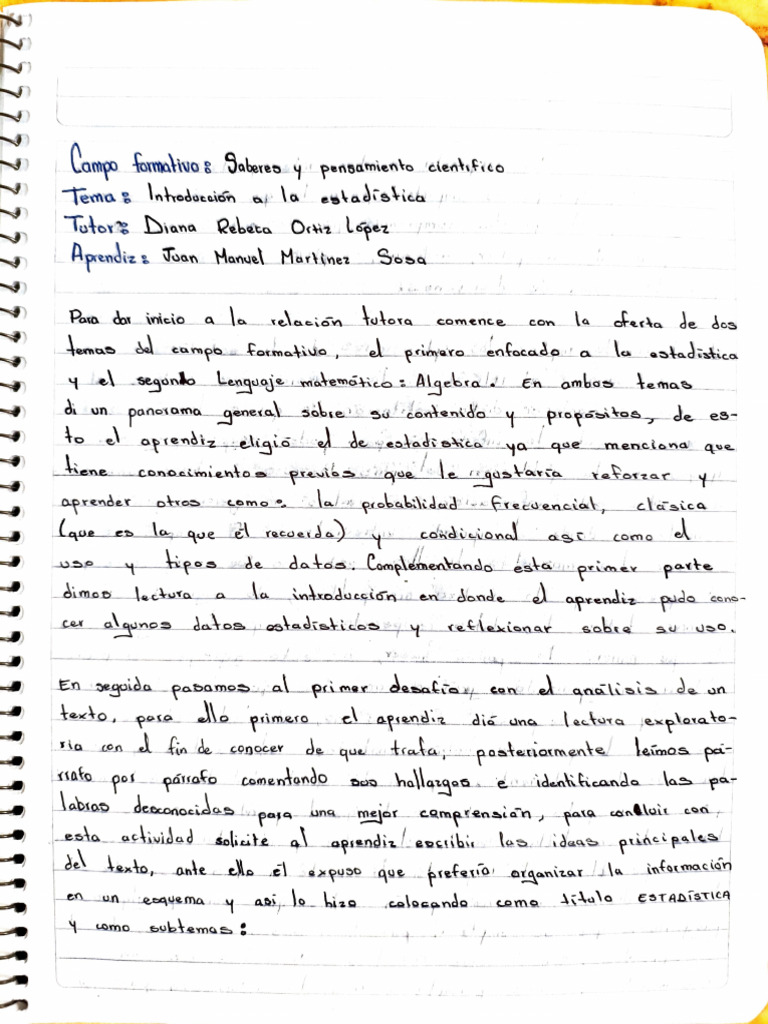 Campo formativo: Saberes y pensamiento científico
Tema: Introducción a la estadística
Tutor: Diana Rebeca Ortiz López
Aprendiz: Juan Manuel Martínez Sosa
Para dar inicio a la relación tutora comence con la oferta de dos
temas del campo formativo, el primero enfocado a la estadística
y el segundo Lenguaje matemático: Algebra. En ambos temas
di un panorama general sobre su contenido y propósitos, de es-
to el aprendiz eligió el de estadística ya que menciona que
tiene conocimientos previos que le gustaría reforzar y
aprender otros como: la probabilidad frecuencial, clásica
(que es la que él recuerda) y condicional así como el
uso y tipos de datos. Complementando esta primer parte
dimos lectura a la introducción en donde el aprendiz pudo cono-
cer algunos datos estadísticos y reflexionar sobre su uso.
En seguida pasamos al primer desafío, con el análisis de un
texto, para ello primero el aprendiz dió una lectura explorato-
ria con el fin de conocer de que trata, posteriormente leímos pá-
rrafo por párrafo comentando sus hallazgos e identificando las pa-
labras desconocidas para una mejor comprensión, para concluir con
esta actividad solicite al aprendiz escribir las ideas principales
del texto, ante ello él expuso que prefería organizar la información
en un esquema y asi lo hizo colocando como título ESTADÍSTICA
y como subtemas: